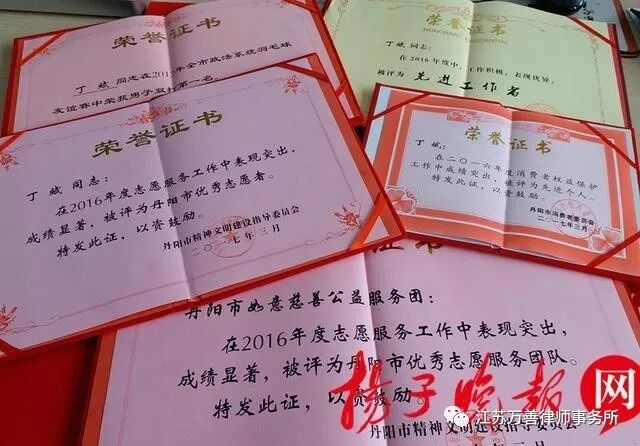 荣誉证书
丁斌 同志在201
年全市政法系统羽毛球
友谊赛中荣获男子双打第一名。
荣誉证书
丁斌同志：
在2016年度中，工作积极，表现优异，
被评为先进工作者
荣誉证书
丁斌同志：
在2016年度志愿服务工作中表现突出，
成绩显著，被评为丹阳市优秀志愿者。
特发此证，以资鼓励。
丹阳市精神文明建设指导委员会
二〇一七年三月
荣誉证书
丁斌：
在二〇一六年度消费者权益保护
工作中成绩突出，被评为先进个人。
特发此证，以资鼓励。
丹阳市消费者委员会
二〇一七年三月
证书
丹阳市如意慈善公益服务团：
在2016年度志愿服务工作中表现突出，
成绩显著，被评为丹阳市优秀志愿服务团队。
特发此证，以资鼓励。
丹阳市精神文明建设指导委员会
扬子晚报网
江苏万善律师事务所